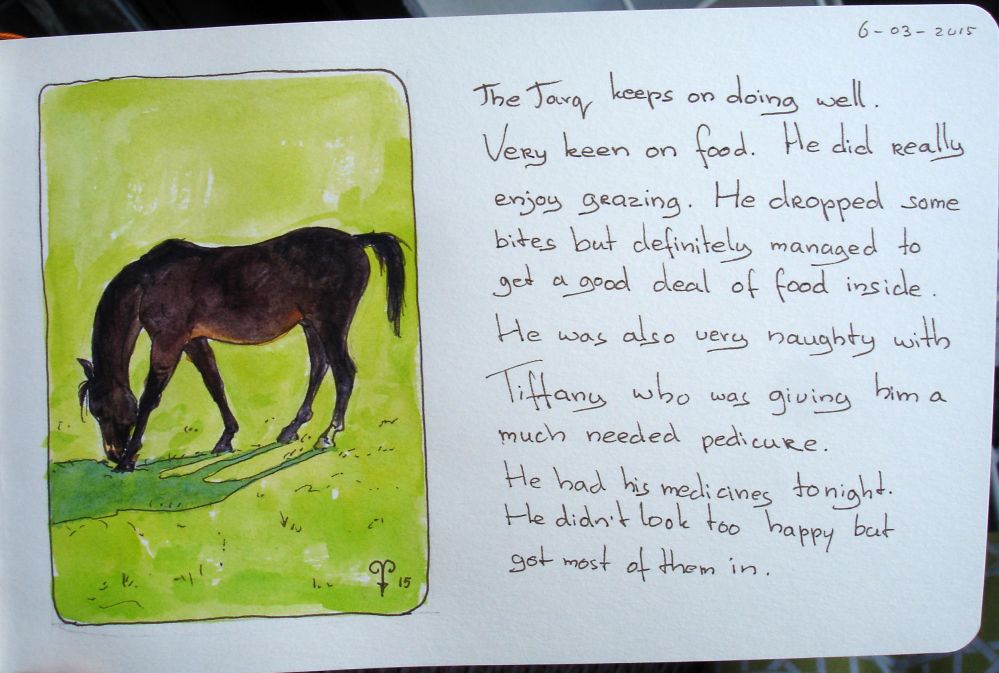 6-03-2015
The Tarq keeps on doing well.
Very keen on food. He did really
enjoy grazing. He dropped some
bites but definitely managed to
get a good deal of food inside.
He was also very naughty with
Tiffany who was giving him a
much needed pedicure.
He had his medicines tonight.
He didn't look too happy but
got most of them in.
15